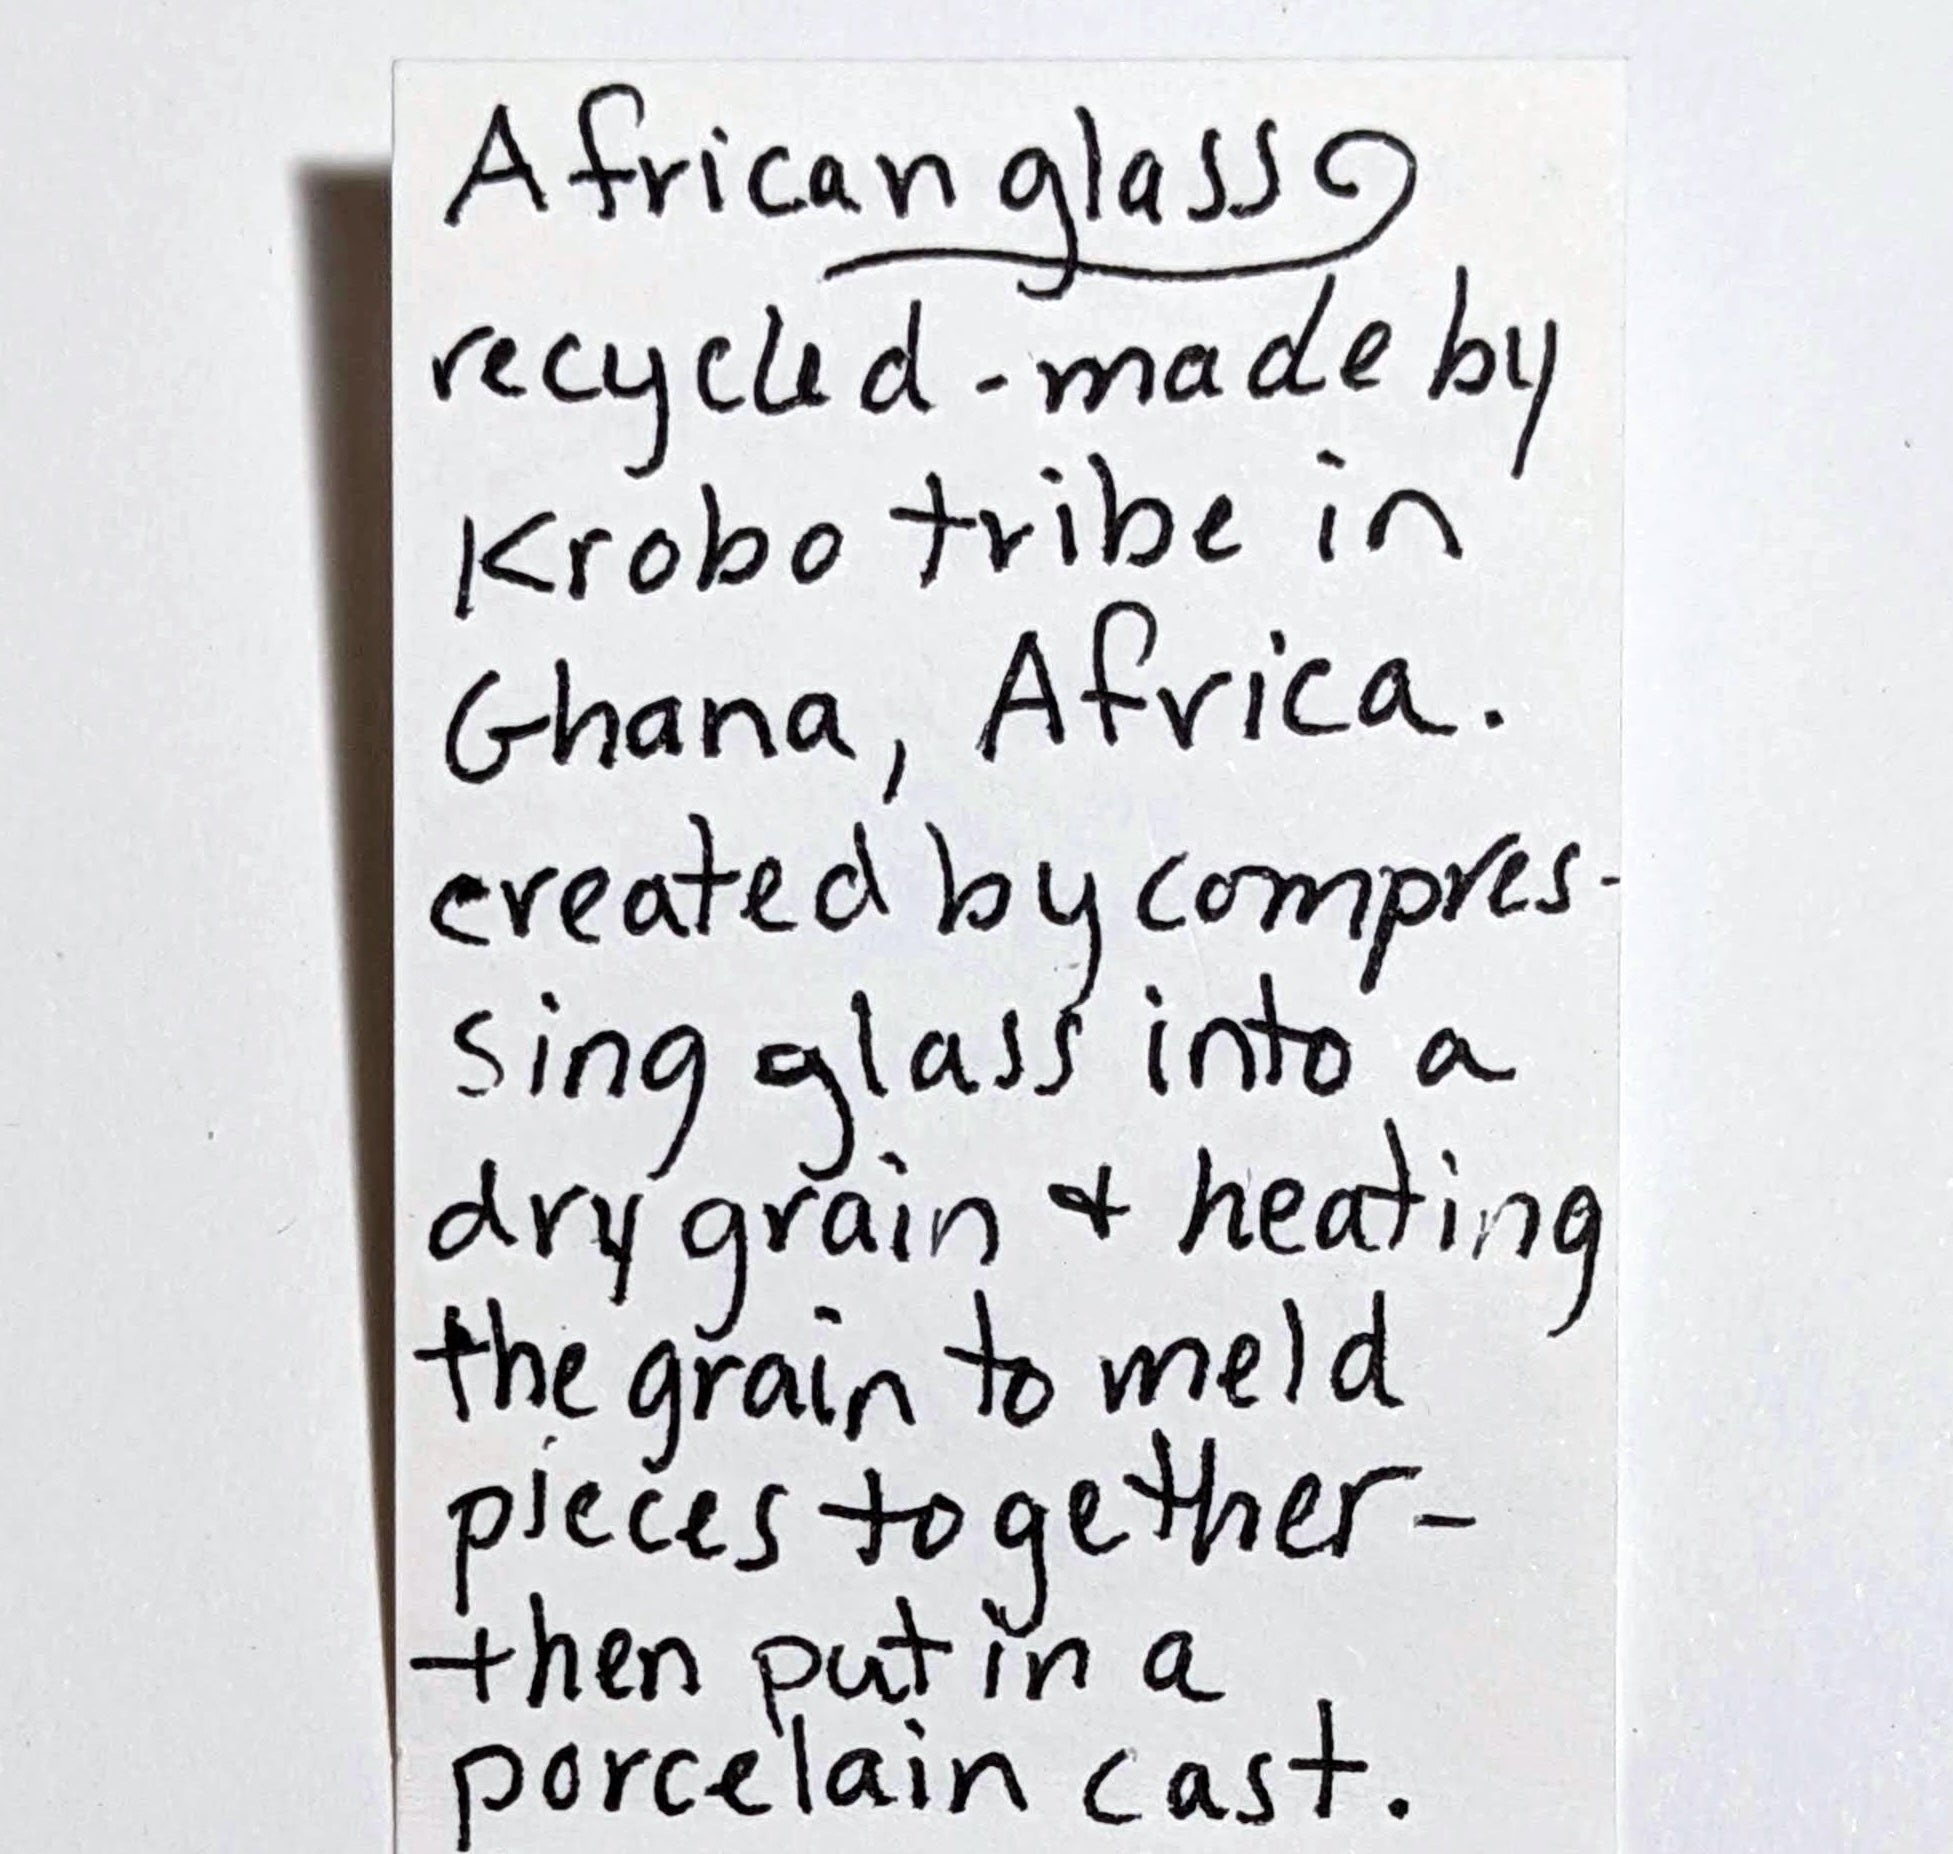 African glass
recycled - made by
Krobo tribe in
Ghana, Africa.
created by compres-
sing glass into a
dry grain & heating
the grain to meld
pieces together -
then put in a
porcelain cast.